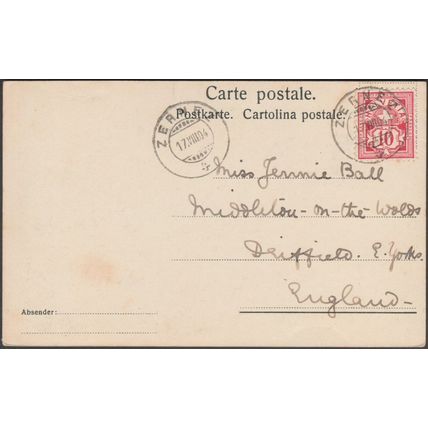 Carte postale.
Postkarte. Cartolina postale.
ZERNEZ
17.VIII.04
ZERNEZ
10
Miss Jennie Ball
Middleton-on-the-Wolds
Driffield. E. Yorks.
England
Absender: